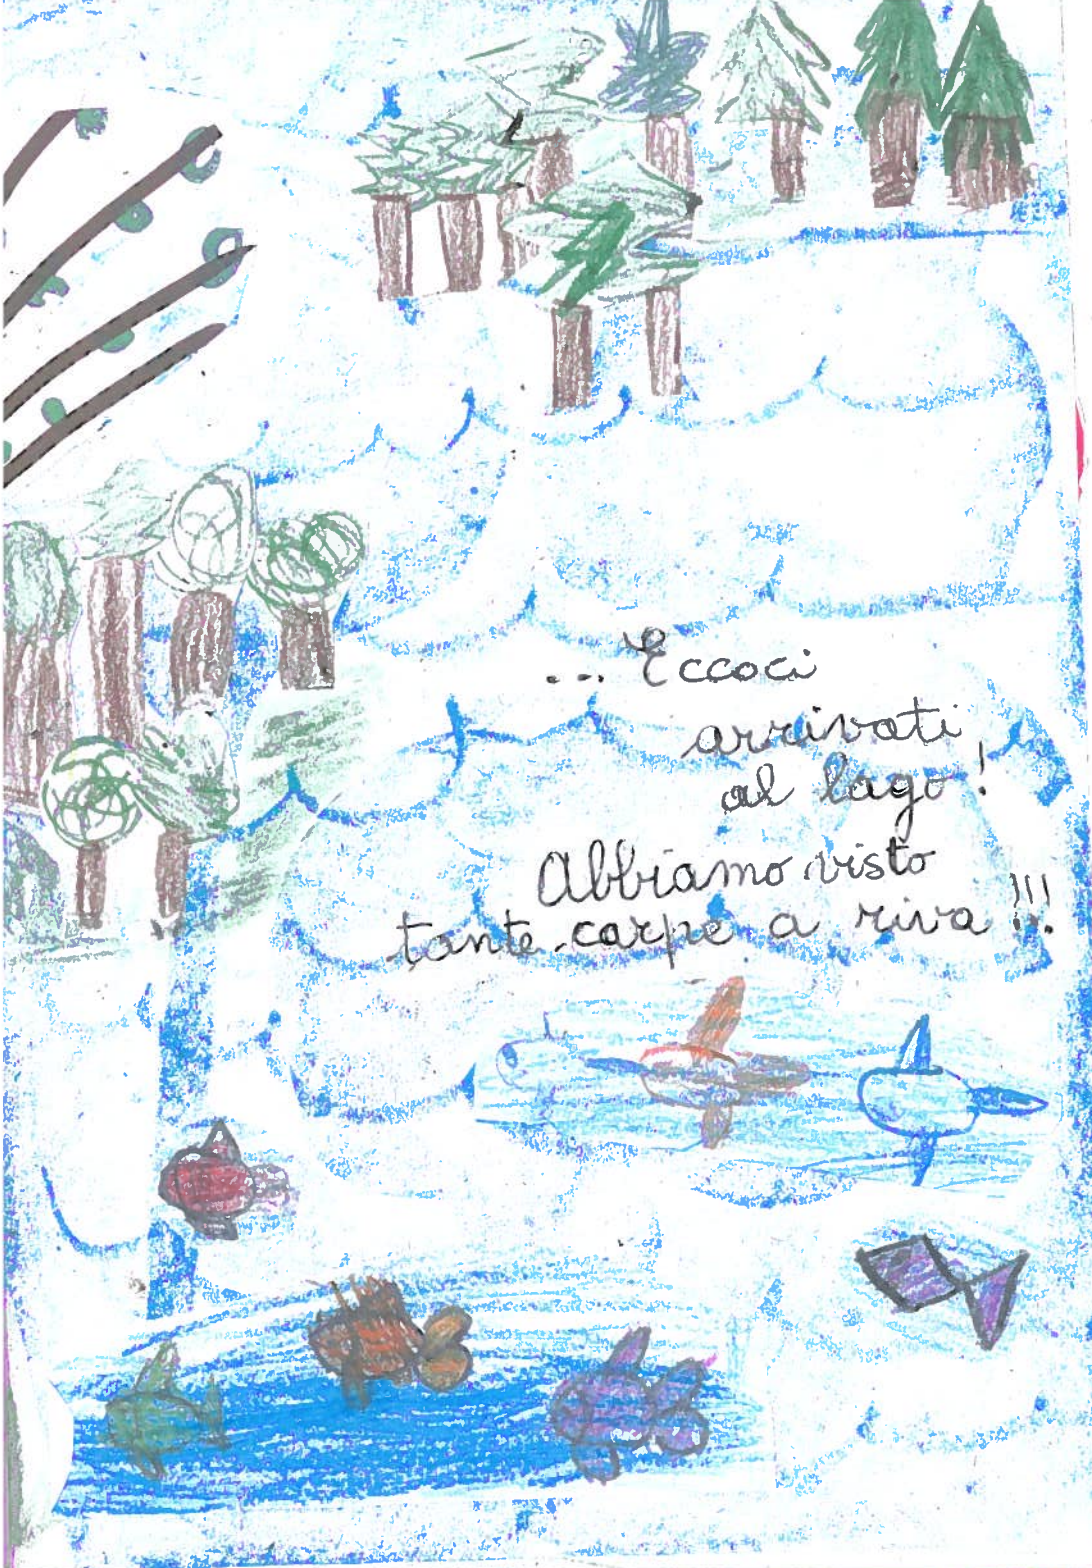 ... Eccoci
arrivati
al lago!
Abbiamo visto
tante carpe a riva!!!